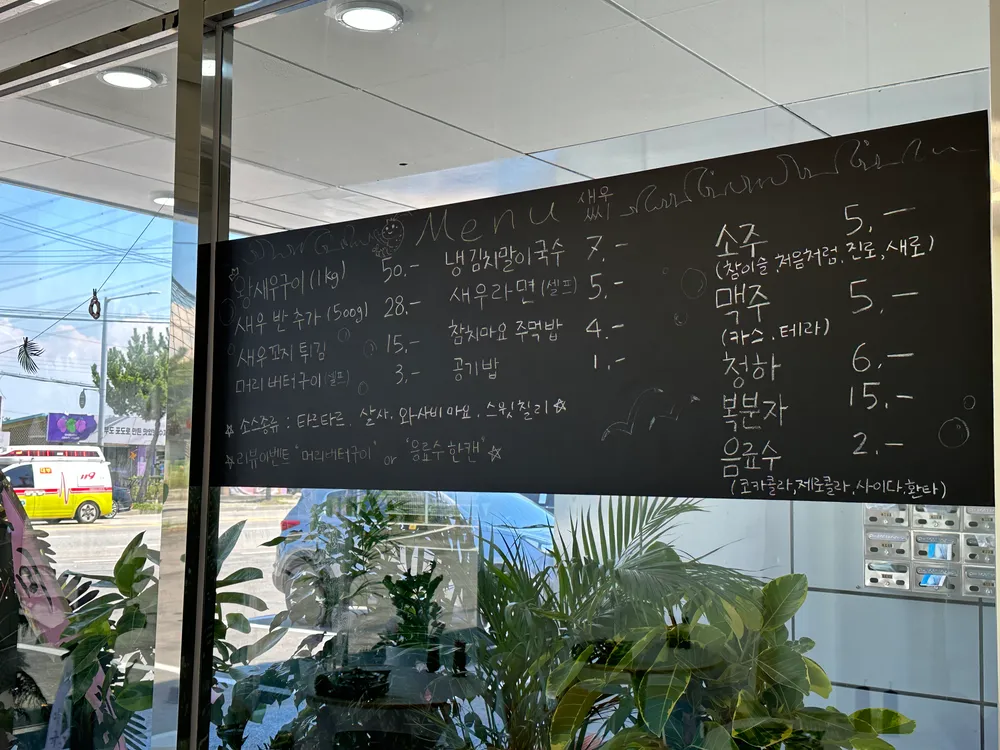 Menu 새우씨
왕새우구이 (1kg) 50.-
새우 반 추가 (500g) 28.-
새우꼬치 튀김 15.-
머리 버터구이 (셀프) 3.-
냉김치말이국수 7.-
새우라면 (셀프) 5.-
참치마요 주먹밥 4.-
공기밥 1.-
☆ 소스종류 : 타르타르, 살사, 와사비마요, 스윗칠리 ☆
☆ 리뷰이벤트 "머리버터구이" or "음료수 한캔" ☆
소주 5.-
(참이슬, 처음처럼, 진로, 새로)
맥주 5.-
(카스, 테라)
청하 6.-
복분자 15.-
음료수 2.-
(코카콜라, 제로콜라, 사이다, 환타)
119